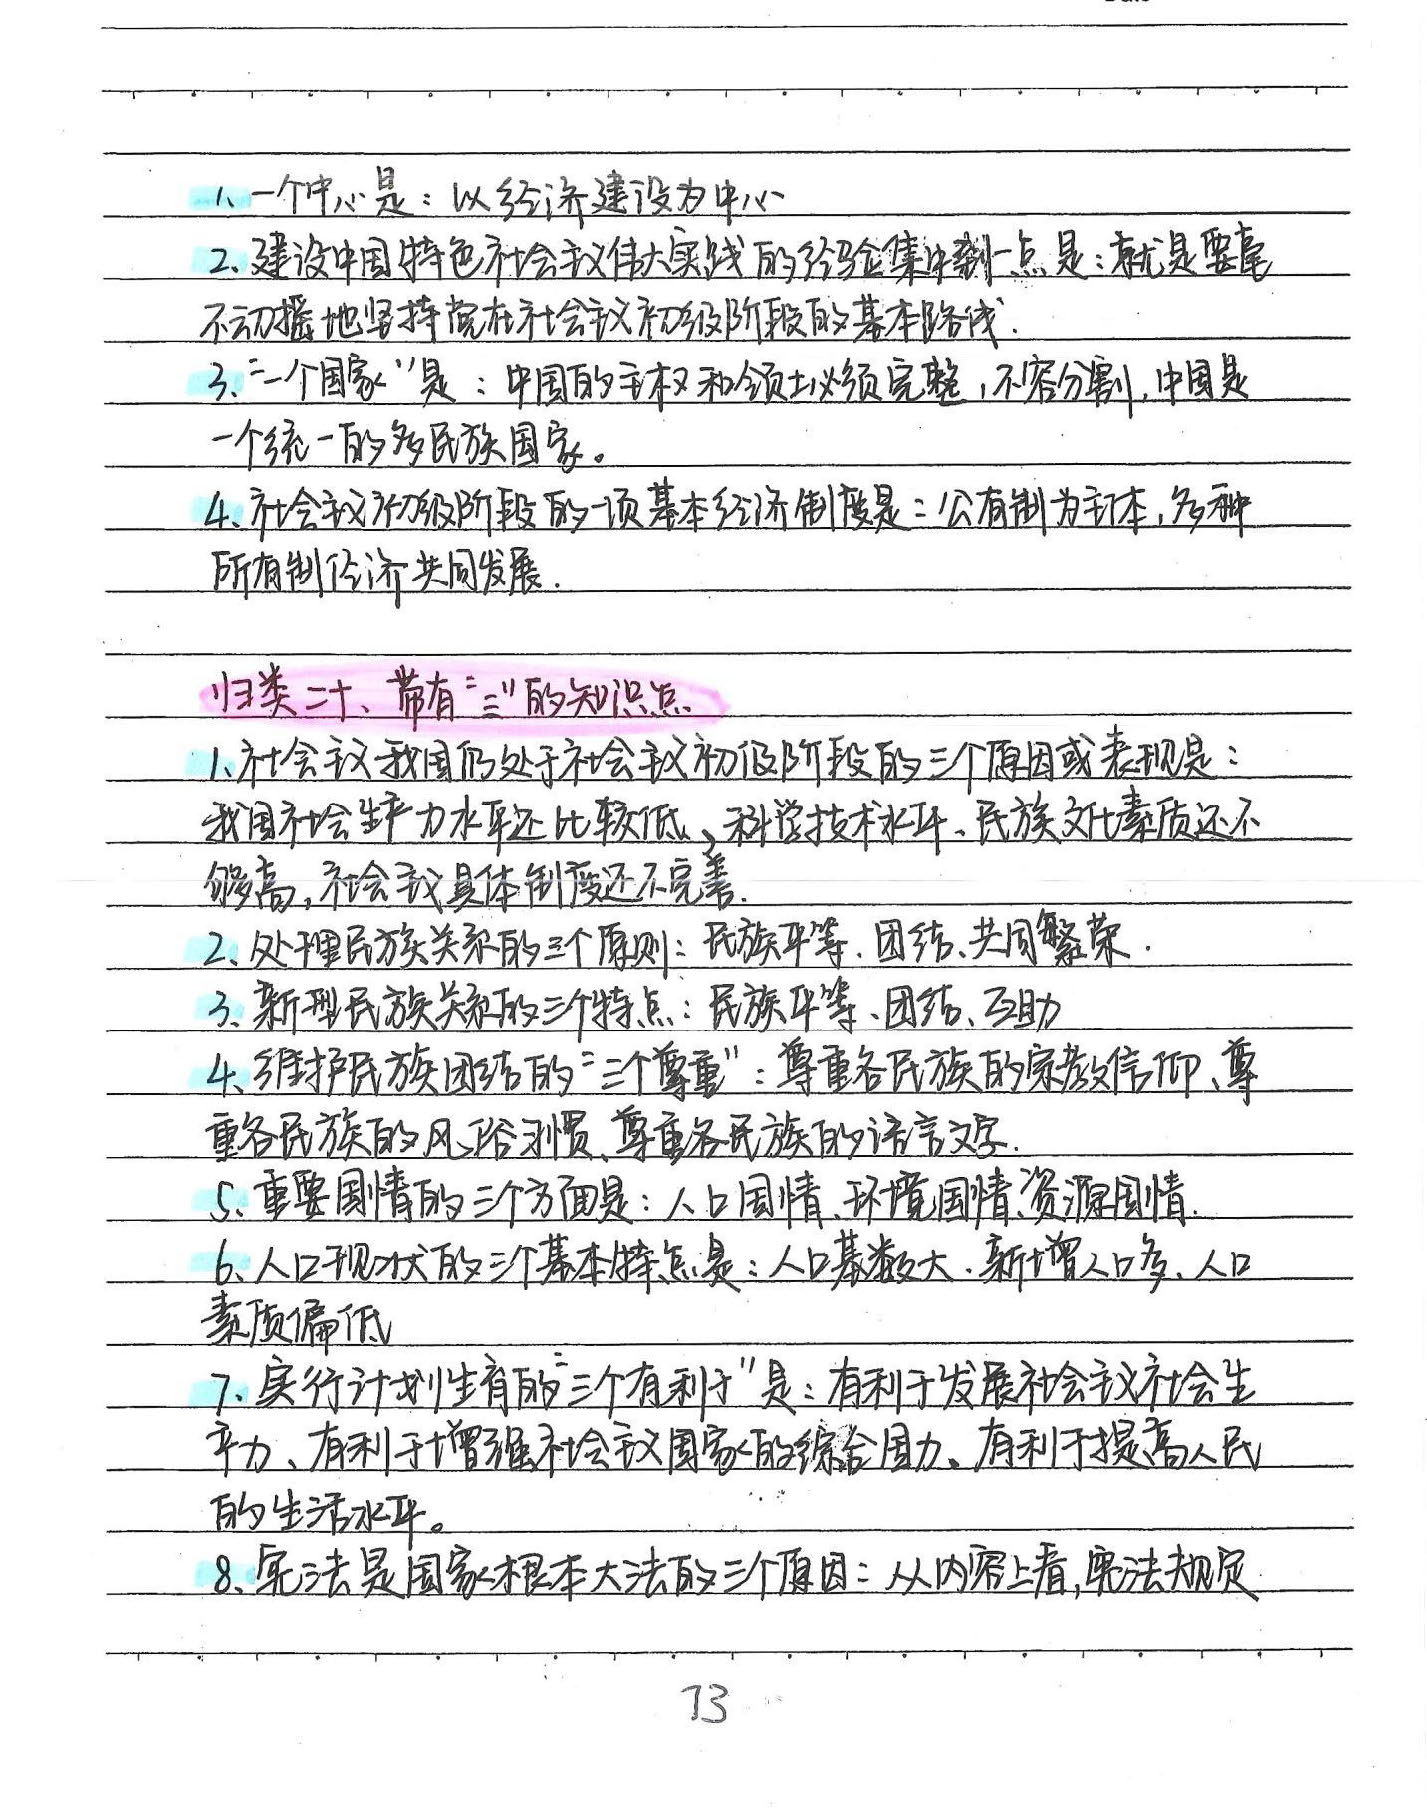 1、一个中心是：以经济建设为中心
2、建设中国特色社会主义伟大实践的经验集中到一点是：就是要毫
不动摇地坚持党在社会主义初级阶段的基本路线.
3、“一个国家”是：中国的主权和领土必须完整,不容分割,中国是
一个统一的多民族国家。
4、社会主义初级阶段的一项基本经济制度是：公有制为主体,多种
所有制经济共同发展.
归类二十、带有“三”的知识点
1、社会主义我国仍处于社会主义初级阶段的三个原因或表现是：
我国社会生产力水平还比较低、科学技术水平、民族文化素质还不
够高,社会主义具体制度还不完善.
2、处理民族关系的三个原则：民族平等、团结、共同繁荣.
3、新型民族关系的三个特点：民族平等、团结、互助
4、维护民族团结的“三个尊重”：尊重各民族的宗教信仰、尊
重各民族的风俗习惯、尊重各民族的语言文字.
5、重要国情的三个方面是：人口国情、环境国情、资源国情.
6、人口现状的三个基本特点是：人口基数大、新增人口多、人口
素质偏低
7、实行计划生育的“三个有利于”是：有利于发展社会主义社会生
产力、有利于增强社会主义国家的综合国力、有利于提高人民
的生活水平。
8、宪法是国家根本大法的三个原因：从内容上看,宪法规定
73